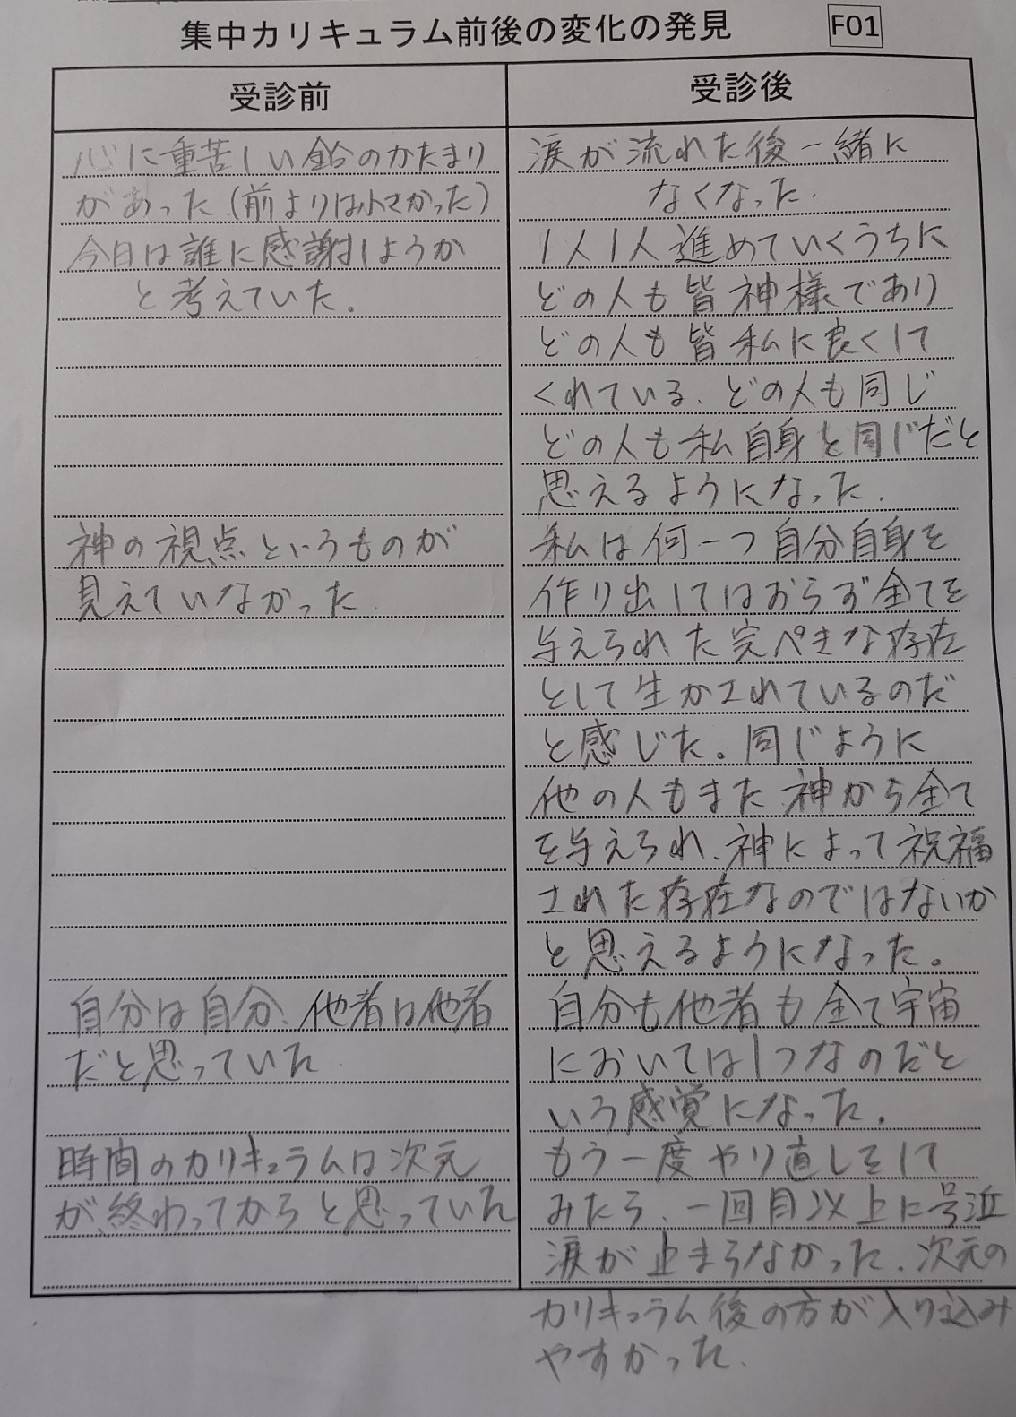 集中カリキュラム前後の変化の発見
F01
受診前
心に重苦しい鉛のかたまり
があった（前よりは小さかった）
今日は誰に感謝しようか
と考えていた。
神の視点というものが
見えていなかった
自分は自分、他者は他者
だと思っていた
時間のカリキュラムは次元
が終わってからと思っていた
受診後
涙が流れた後一緒に
なくなった.
1人1人進めていくうちに
どの人も皆神様であり
どの人も皆私に良くして
くれている、どの人も同じ
どの人も私自身と同じだと
思えるようになった.
私は何一つ自分自身を
作り出してはおらず全てを
与えられた完ぺきな存在
として生かされているのだ
と感じた。同じように
他の人もまた、神から全て
を与えられ、神によって祝福
された存在なのではないか
と思えるようになった。
自分も他者も全て宇宙
においては1つなのだと
いう感覚になった.
もう一度やり直しをして
みたら、一回目以上に号泣
涙が止まらなかった.次元の
カリキュラム後の方が入り込み
やすかった.